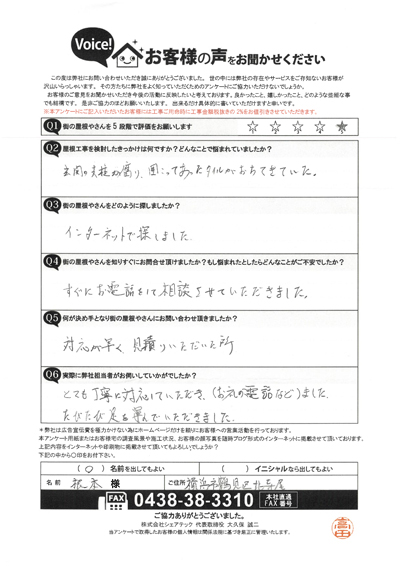 Voice!
お客様の声をお聞かせください
この度は弊社にお問い合わせいただき誠にありがとうございました。世の中には弊社の存在やサービスをご存知ないお客様が
沢山いらっしゃいます。その方たちに弊社をよく知っていただくためのアンケートにご協力いただけないでしょうか。
お客様のご意見をお聞かせいただき今後の活動に反映したいと考えております。良かったこと、嬉しかったこと、どのような些細な事
でも結構です。是非ご協力のほどお願いいたします。出来るだけ具体的に書いていただけますと幸いです。
※本アンケートにご記入いただいたお客様には工事ご用命時に工事金額税抜きの2%をお値引きさせていただきます。
Q1 街の屋根やさんを5段階で評価をお願いします
☆ ☆ ☆ ☆ ★
Q2 屋根工事を検討したきっかけは何ですか?どんなことで悩まれていましたか?
玄関の支柱が腐り、囲こってあったタイルがおちてきていた。
Q3 街の屋根やさんをどのように探しましたか?
インターネットで探しました
Q4 街の屋根やさんを知りすぐにお問合せ頂けましたか?もし悩まれたとしたらどんなことがご不安でしたか?
すぐにお電話をして相談させていただきました。
Q5 何が決め手となり街の屋根やさんにお問い合わせ頂きましたか?
対応が早く、見積りいただいた所
Q6 実際に弊社担当がお伺いしていかがでしたか?
とても丁寧に対応していただき、(お礼の電話など)ました
たびたび足を運んでいただきました。
＊弊社は広告宣伝費を極力かけない為にホームページだけを頼りにお客様への営業活動を行っております。
本アンケート用紙またはお客様宅の調査風景や施工状況、お客様の顔写真を随時ブログ形式のインターネットに掲載させて頂いております。
上記内容をインターネットや印刷物に掲載させて頂いてもよろしいでしょうか?
下記の中から○印をお付下さい。
(○) 名前を出してもよい
( ) イニシャルなら出してもよい
名前 様
ご住所 横浜市鶴見区
FAX 0438-38-3310 本社直通 FAX番号
ご協力ありがとうございました。
株式会社シェアテック 代表取締役 大久保 誠二
当アンケートで取得したお客様の個人情報は関係法令に基づき厳正に管理いたします。
高田